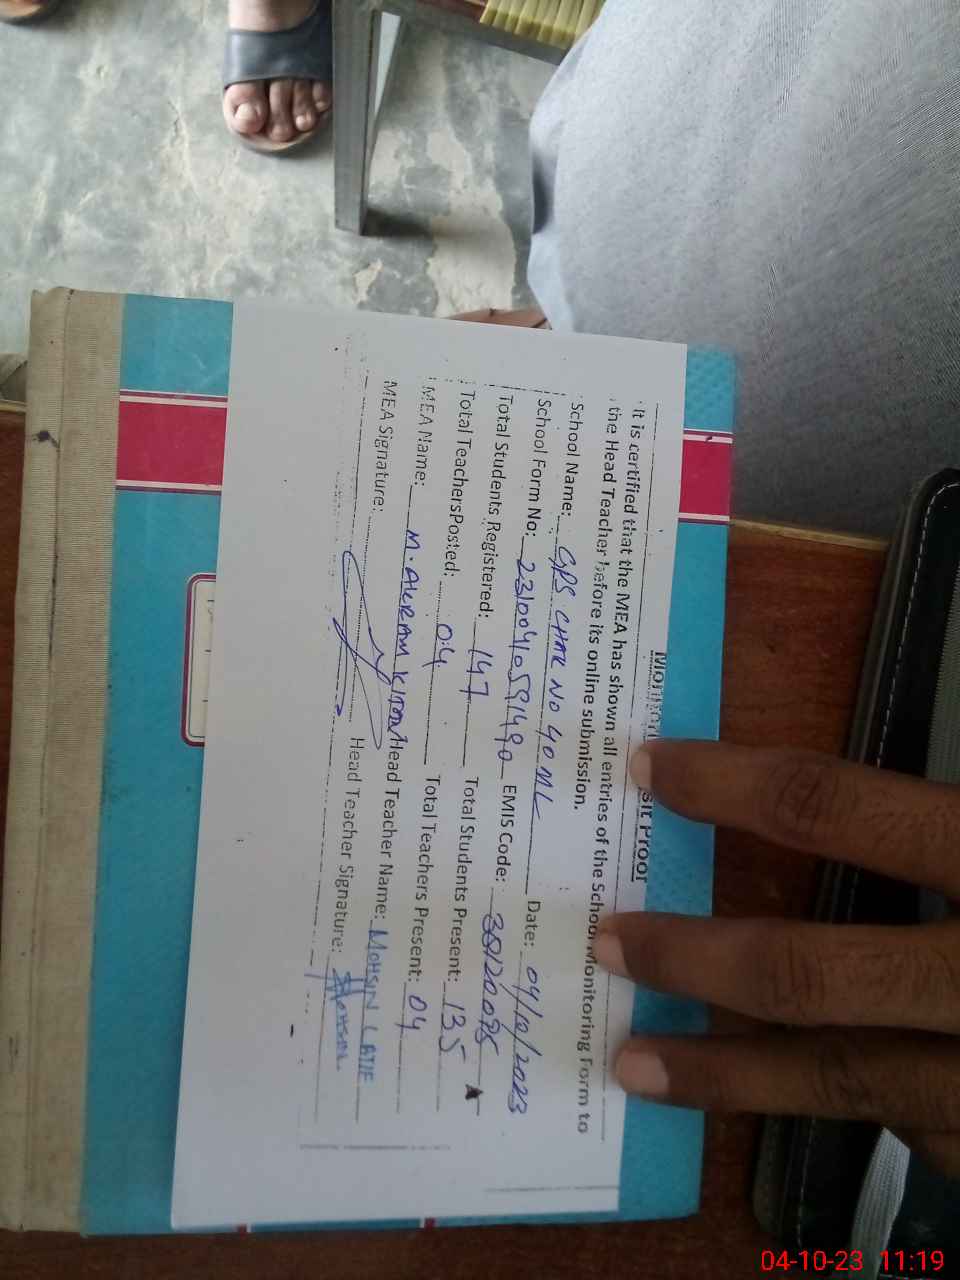 Monitoring Visit Proof
It is certified that the MEA has shown all entries of the School Monitoring Form to
the Head Teacher before its online submission.
School Name: GPS CHAK NO 40 ML Date: 04/10/2023
School Form No: 23100410591490 EMIS Code: 38120095
Total Students Registered: 147 Total Students Present: 135
Total Teachers Posted: 04 Total Teachers Present: 04
MEA Name: M. AKRAM Head Teacher Name: MOHSIN LATIF
MEA Signature: Head Teacher Signature: Mohsin
04-10-23 11:19